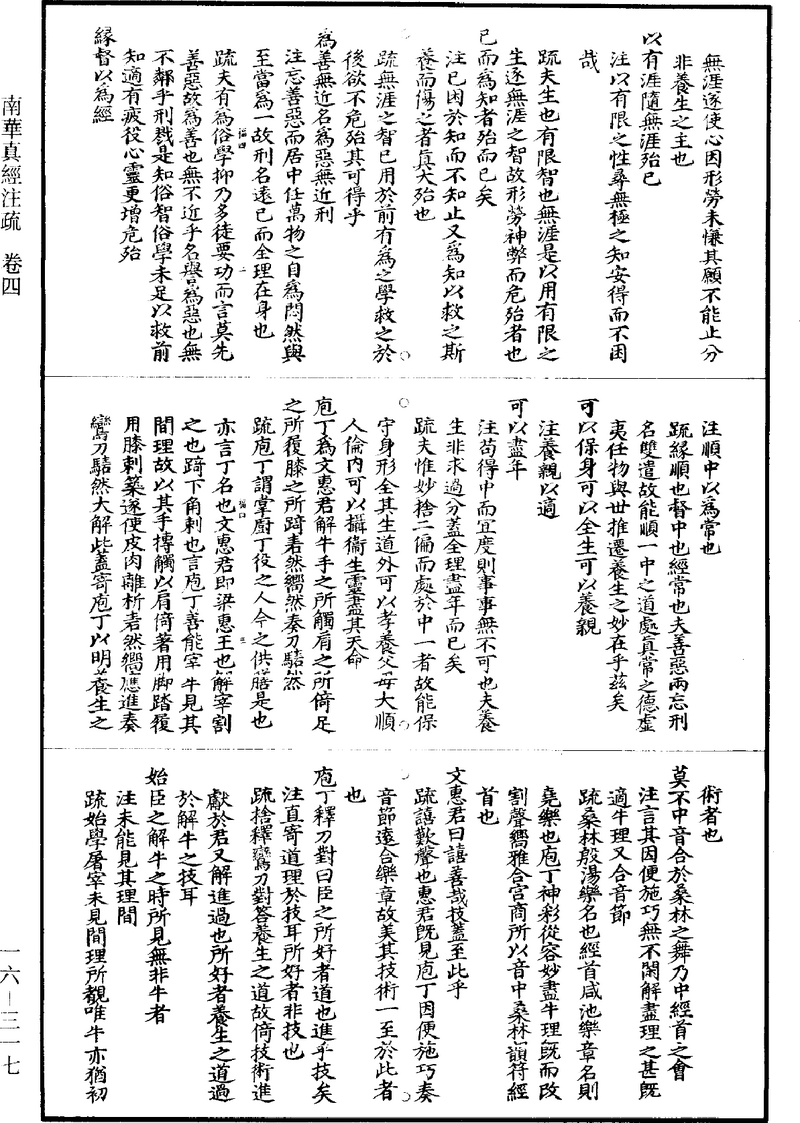 無涯遂使心困形勞未慊其願不能止分
非養生之主也
以有涯隨無涯殆已
注以有限之性尋無極之知安得而不困
哉
疏夫生也有限智也無涯是以用有限之
生逐無涯之智故形勞神弊而危殆者也
已而為知者殆而已矣
注已困於知而不知止又為知以救之斯
養而傷之者真大殆也
疏無涯之智已用於前有為之學救之於
後欲不危殆其可得乎
為善無近名為惡無近刑
注忘善惡而居中任萬物之自為悶然與
至當為一故刑名遠已而全理在身也
疏夫有為俗學抑乃多徒要功而言莫先
善惡故為善也無不近乎名譽為惡也無
不鄰乎刑戮是知俗智俗學未足以救前
知適有疲役心靈更增危殆
緣督以為經
注順中以為常也
疏緣順也督中也經常也夫善惡兩忘刑
名雙遣故能順一中之道處真常之德虛
夷任物與世推遷養生之妙在乎茲矣
可以保身可以全生可以養親
注養親以適
可以盡年
注苟得中而宜度則事事無不可也夫養
生非求過分蓋全理盡年而已矣
疏夫惟妙捨二偏而處於中一者故能保
守身形全其生道外可以孝養父母大順
人倫內可以攝衛生靈盡其天命
庖丁為文惠君解牛手之所觸肩之所倚足
之所履膝之所踦砉然嚮然奏刀騞然
疏庖丁謂掌廚丁役之人今之供膳是也
亦言丁名也文惠君即梁惠王也解宰割
之也踦下角刺也言庖丁善能宰牛見其
間理故以其手搏觸以肩倚著用腳踏履
用膝刺築遂使皮肉離析砉然嚮應進奏
鸞刀騞然大解此蓋寄庖丁以明養生之
術者也
莫不中音合於桑林之舞乃中經首之會
注言其因便施巧無不閑解盡理之甚既
適牛理又合音節
疏桑林殷湯樂名也經首咸池樂章名則
堯樂也庖丁神彩從容妙盡牛理既而改
割聲嚮雅合宮商所以音中桑林韻符經
首也
文惠君曰譆善哉技蓋至此乎
疏譆歎聲也惠君既見庖丁因便施巧奏
音節遠合樂章故美其技術一至於此者
也
庖丁釋刀對曰臣之所好者道也進乎技矣
注直寄道理於技耳所好者非技也
疏捨釋鸞刀對答養生之道故倚技術進
獻於君又解進過也所好者養生之道過
於解牛之技耳
始臣之解牛之時所見無非牛者
注未能見其理間
疏始學屠宰未見間理所覩唯牛亦猶初
南華真經注疏 卷四
一六—三一七